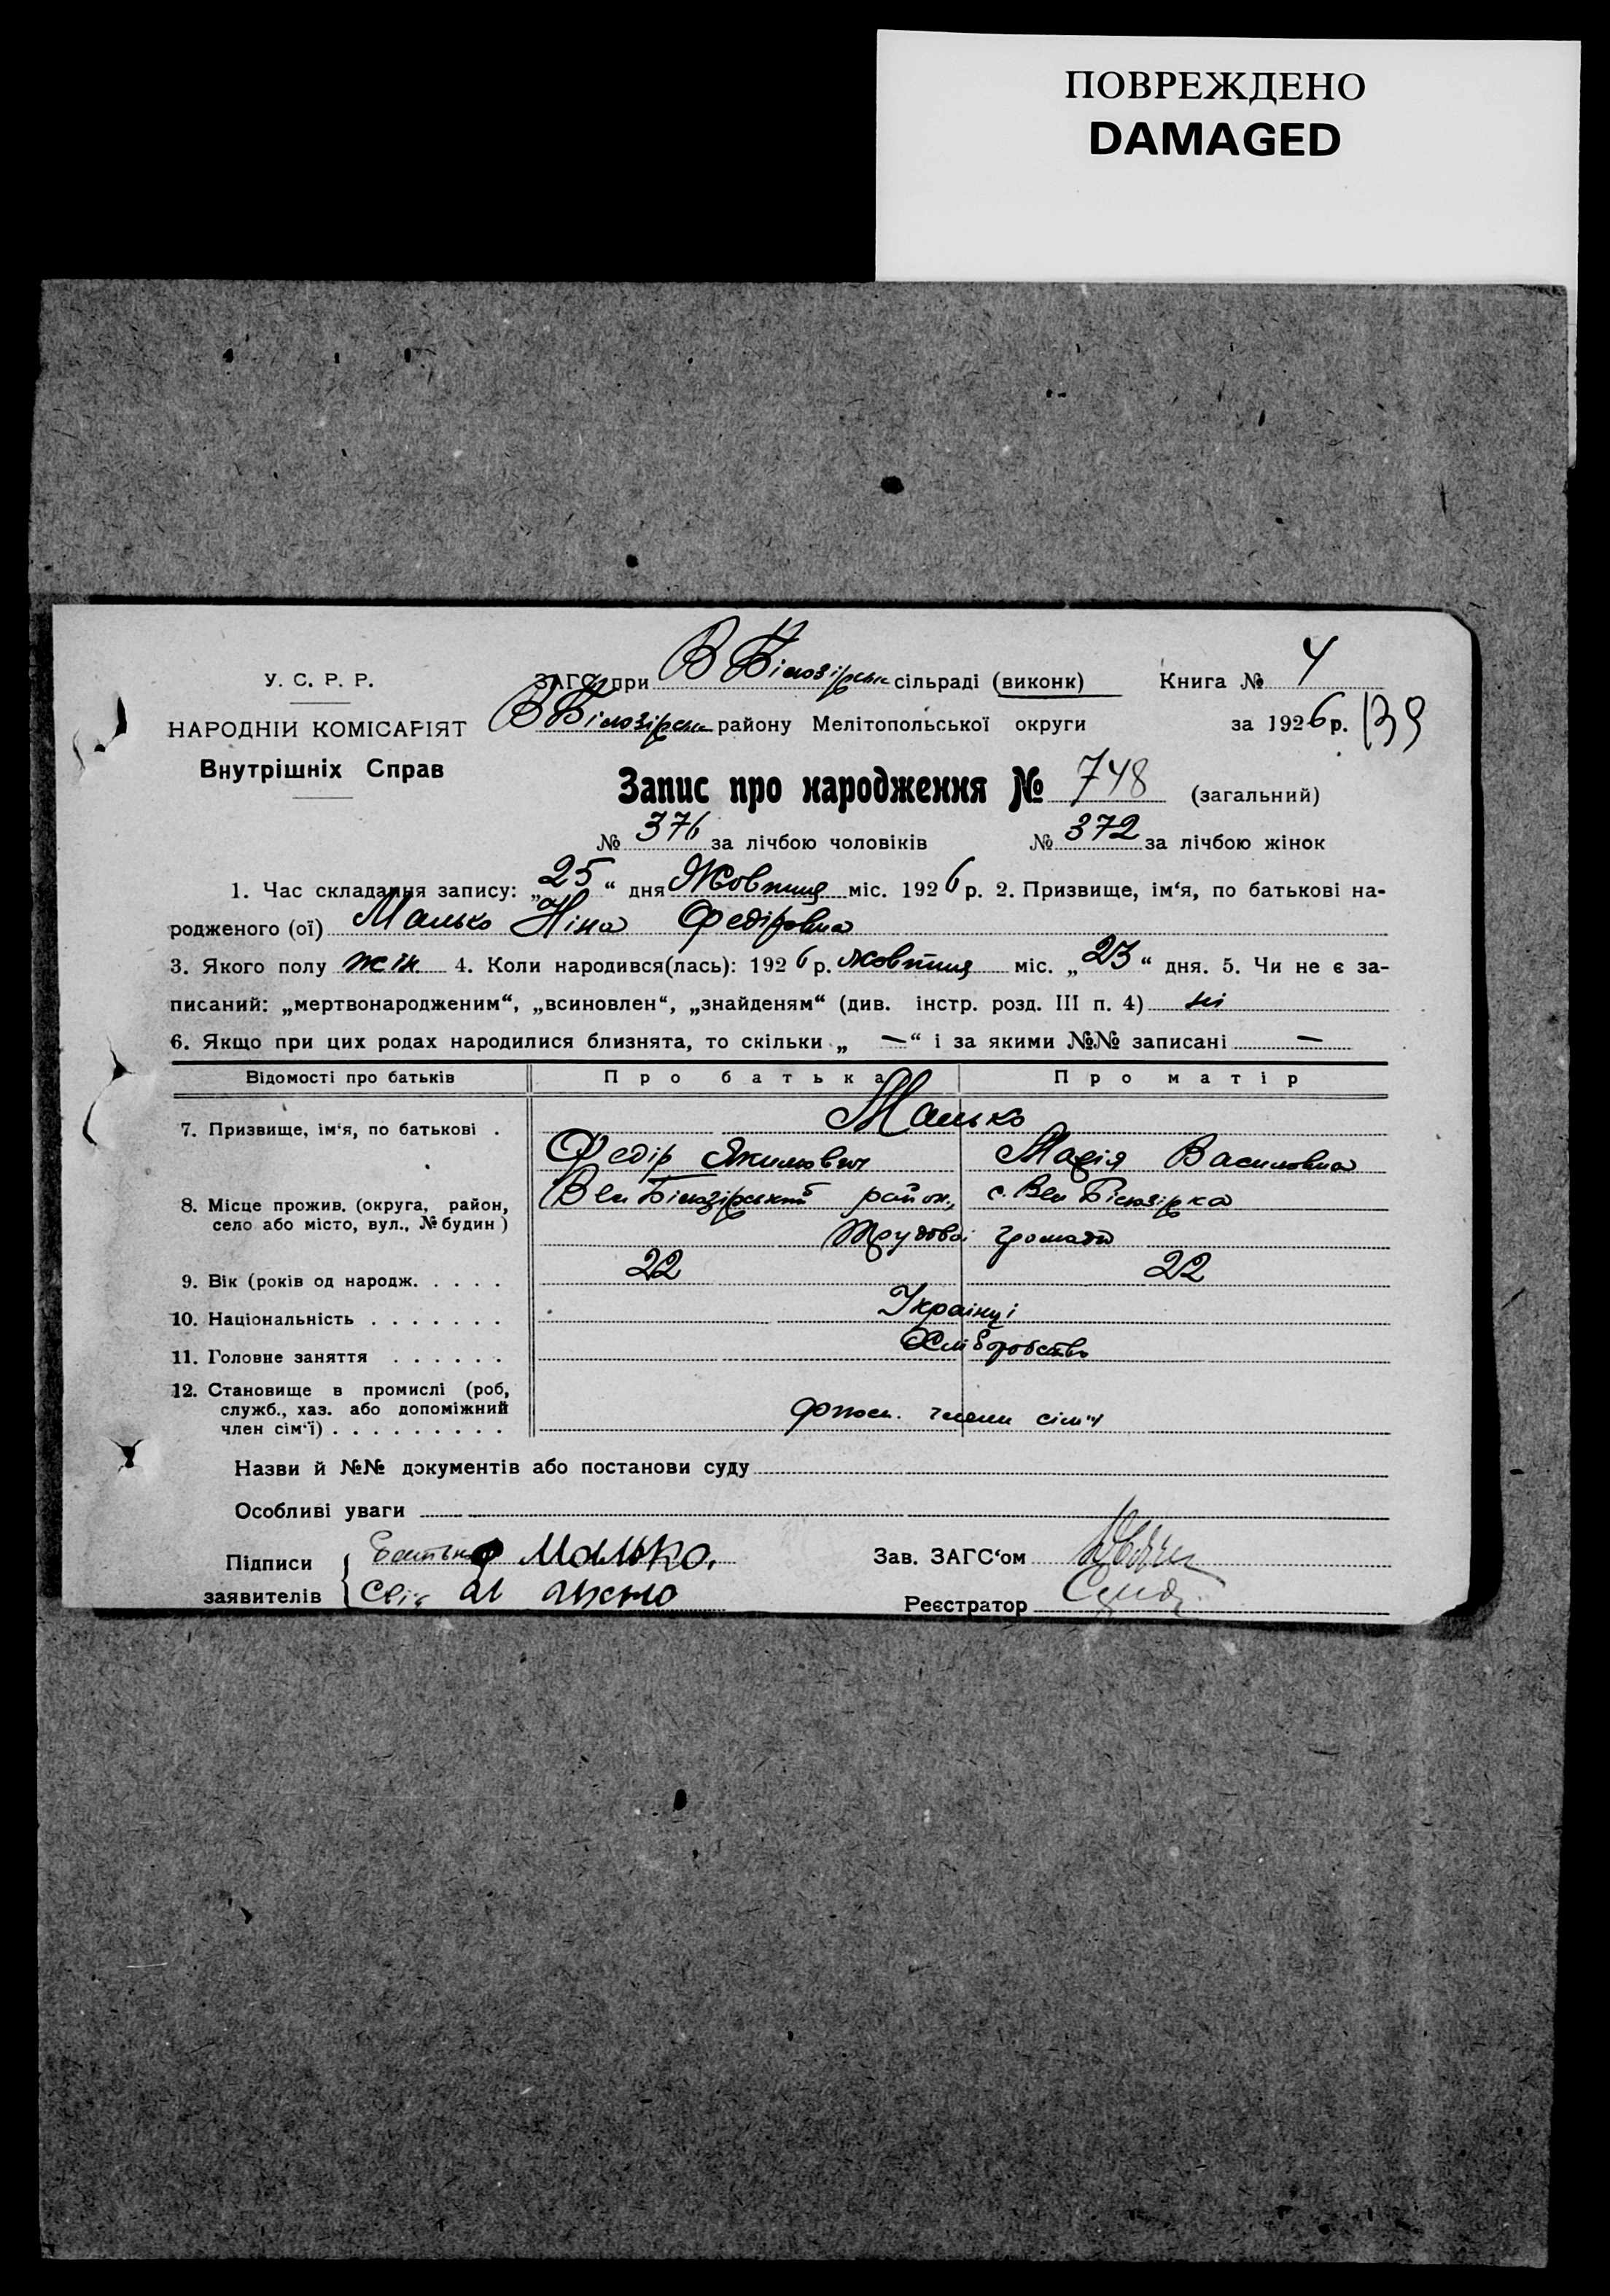 ПОВРЕЖДЕНО
DAMAGED
У. С. Р. Р.
НАРОДНІЙ КОМІСАРІЯТ
Внутрішніх Справ
ЗАГС при В Білозірськ сільраді (виконк) Книга № 4
В Білозірськ району Мелітопольської округи за 1926 р. 139
Запис про народження № 748 (загальний)
№ 376 за лічбою чоловіків № 372 за лічбою жінок
1. Час складання запису: „25“ дня Жовтня міс. 1926 р. 2. Призвище, ім‘я, по батькові на-
родженого (ої) Малько Ніна Федіровна
3. Якого полу жін 4. Коли народився(лась): 1926 р. жовтня міс. „23“ дня. 5. Чи не є за-
писаний: „мертвонародженим“, „всиновлен“, „знайденям“ (див. інстр. розд. III п. 4) ні
6. Якщо при цих родах народилися близнята, то скільки „ — “ і за якими №№ записані —
Відомості про батьків Про батька Про матір
7. Призвище, ім‘я, по батькові . Малько
Федір Якимович Марія Василовна
8. Місце прожив. (округа, район, Вел Білозірський район, с. Вел Білозірка
село або місто, вул., № будин) Трудової громади
9. Вік (років од народж. . . . . 22 22
10. Національність . . . . . . . Українці
11. Головне заняття . . . . . . Хліборобство
12. Становище в промислі (роб,
служб., хаз. або допоміжний допом. члени сім'ї
член сім‘ї) . . . . . . . . .
Назви й №№ документів або постанови суду
Особливі уваги
Підписи Батько Малько. Зав. ЗАГС‘ом
заявителів Реєстратор